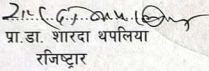 प्रा.डा. शारदा थपलिया
रजिष्ट्रार